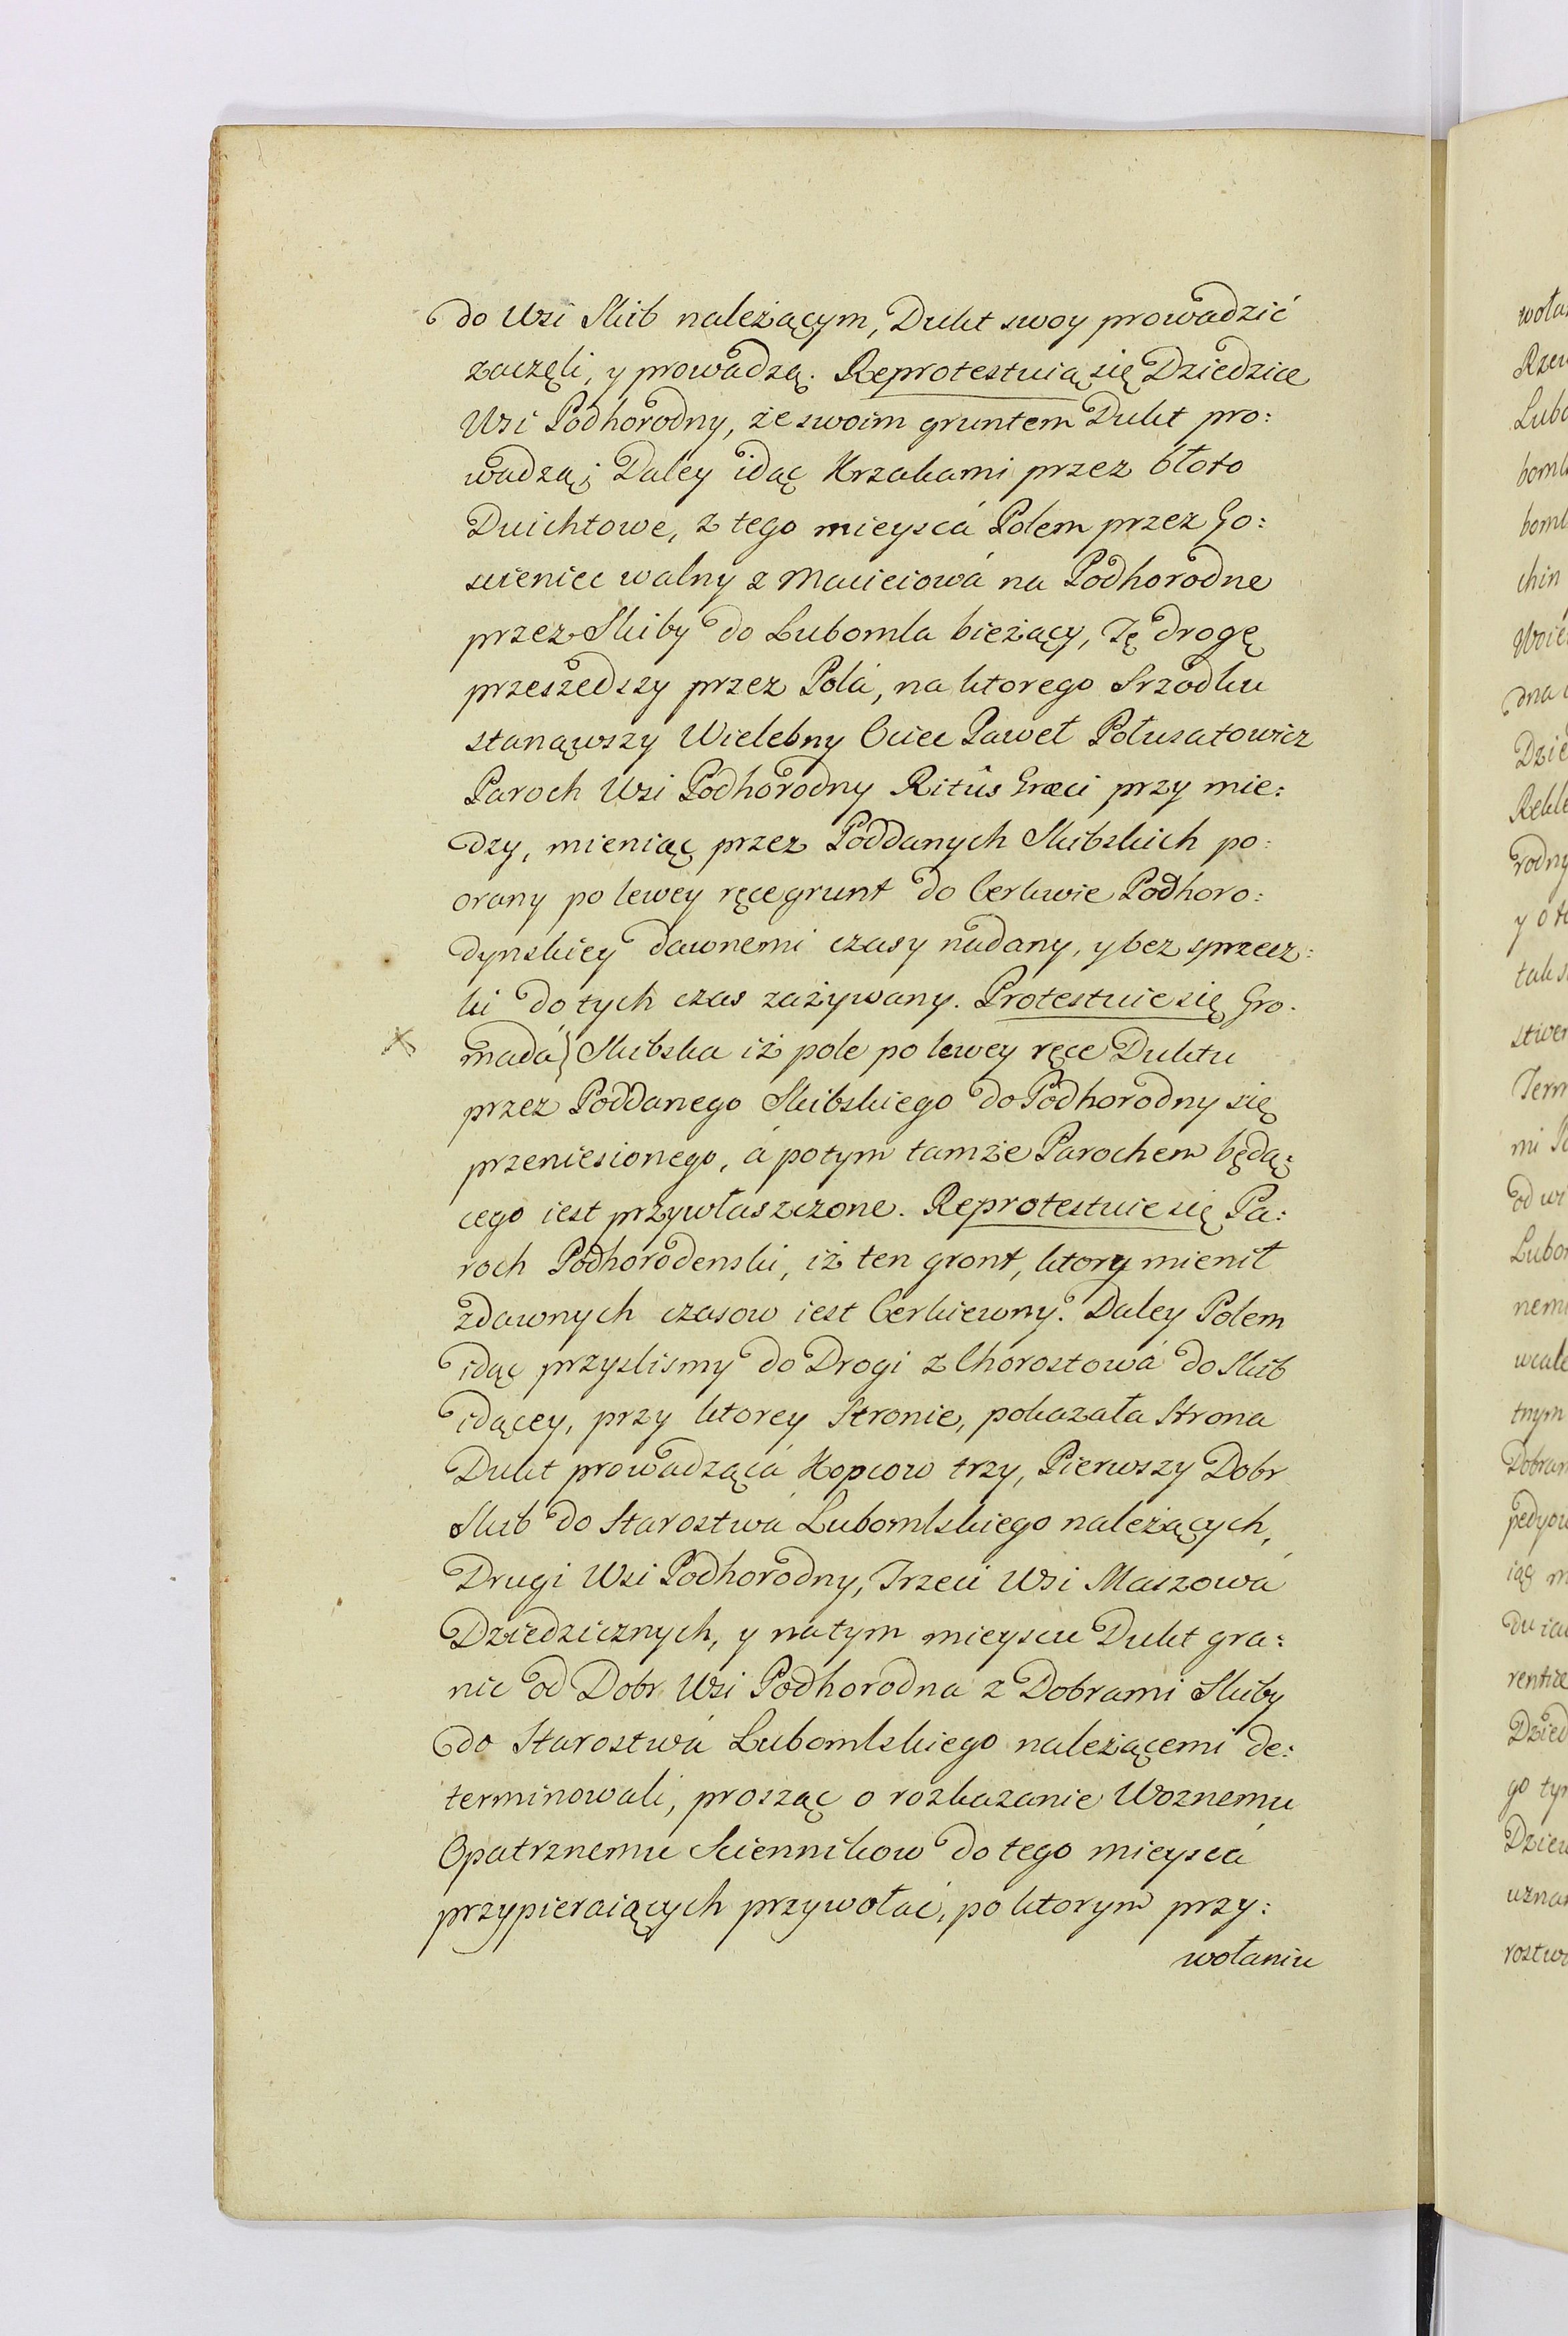 do Wsi Skib należącym, Dukt swoy prowadzić
zaczęli, y prowadzą. Reprotestuią się Dziedzice
Wsi Podhorodny, że swoim gruntem Dukt pro:
wadzą; Daley idąc Krzakami przez błoto
Duichtowe, z tego mieyscá Polem przez Go:
scieniec walny z Macieiowá na Podhorodne
przez Skiby do Lubomla bieżący, Tę drogę
przeszedszy przez Polá, na ktorego Srzodku
stanąwszy Wielebny Ociec Paweł Połusatowicz
Paroch Wsi Podhorodny Ritûs Græci przy mie:
dzy, mieniąc przez Poddanych Skibskich po:
orany po lewey ręce grunt do Cerkwie Podhoro:
dynskiey dawnemi czasy nadany, y bez sprzecz:
ki do tych czas zażywany. Protestuie się Gro:
madá Skibska iż pole po lewey ręce Duktu
przez Poddanego Skibskiego do Podhorodny się
przeniesionego, á potym tamże Parochem będą:
cego iest przywłaszczone. Reprotestuie się Pa:
roch Podhorodenski, iż ten gront, ktory mienił
zdawnych czasow iest Cerkiewny. Daley Polem
idąc przyslismy do Drogi z Chorostowá do Skib
idącey, przy ktorey Stronie, pokazała Strona
Dukt prowadzącá Kopcow trzy, Pierwszy Dobr
Skib do Starostwá Lubomlskiego należących,
Drugi Wsi Podhorodny, Trzeci Wsi Maszowá
Dziedzicznych, y na tym mieyscu Dukt gra:
nic od Dobr Wsi Podhorodna z Dobrami Skiby
do Starostwá Lubomlskiego należącemi de:
terminowali, prosząc o rozkazanie Woznemu
Opatrznemu Sciennikow do tego mieyscá
przypieraiących przywołać, po ktorym przy:
wołaniu